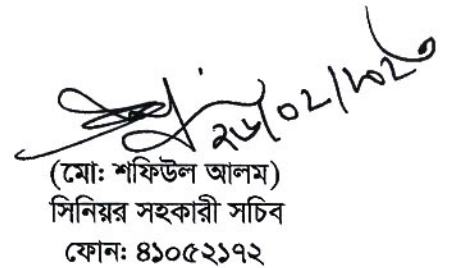 ২৬/০২/২০২৩
(মো: শফিউল আলম)
সিনিয়র সহকারী সচিব
ফোন: ৪১০৫২১৭২